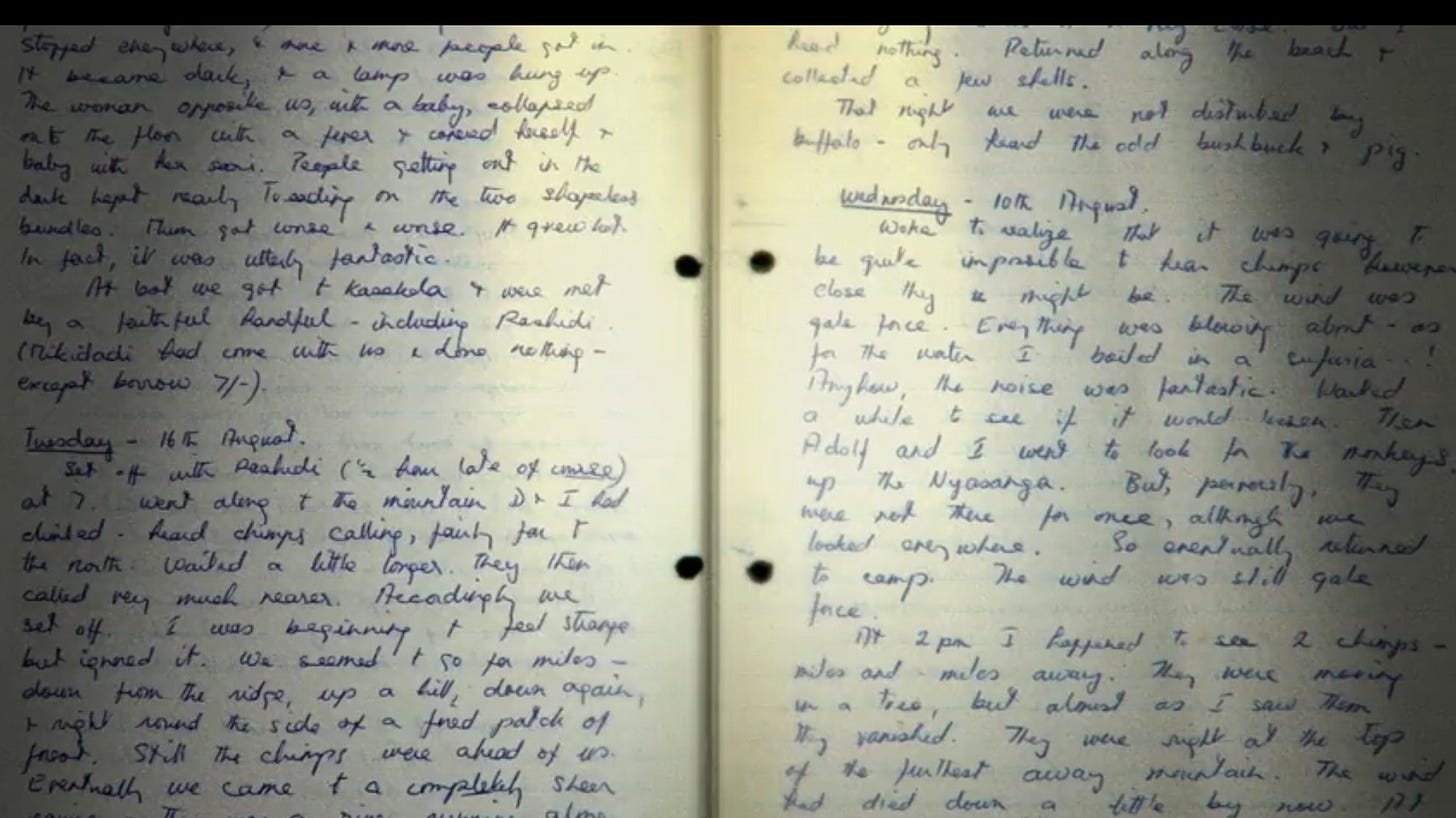 stopped everywhere, & more & more people got in.
It became dark, & a lamp was hung up.
The woman opposite us, with a baby, collapsed
onto the floor with a fever & covered herself &
baby with her sari. People getting out in the
dark kept nearly treading on the two shapeless
bundles. Then got worse & worse. It grew hot.
In fact, it was utterly fantastic.
At last we got t Kasekela & were met
by a faithful handful - including Rashidi.
(Mikidadi had come with us & done nothing -
except borrow 7/-).
Tuesday - 16th August.
Set off with Rashidi (½ hour late of course)
at 7. Went along t the mountain D & I had
climbed - heard chimps calling, fairly far t
the north. Waited a little longer. They then
called very much nearer. Accordingly we
set off. I was beginning t feel strange
but ignored it. We seemed t go for miles -
down from the ridge, up a hill, down again,
& right round the side of a patch of
forest. Still the chimps were ahead of us.
Eventually we came t a completely sheer
heard nothing. Returned along the beach &
collected a few shells.
That night we were not disturbed by
buffalo - only heard the odd bushbuck & pig.
Wednesday - 10th August.
Woke to realize that it was going to
be quite impossible t hear chimps however
close they might be. The wind was
gale force. Everything was blowing about - as
for the water I boiled in a sufuria --!
Anyhow, the noise was fantastic. Waited
a while to see if it would lessen. Then
Adolf and I went to look for the monkeys
up the Nyasanga. But, perversely, they
were not there for once, although we
looked everywhere. So eventually returned
to camp. The wind was still gale
force.
At 2 pm I happened to see 2 chimps -
miles and - miles away. They were moving
in a tree, but almost as I saw them
they vanished. They were right at the top
of the furthest away mountain. The wind
had died down a little by now. At